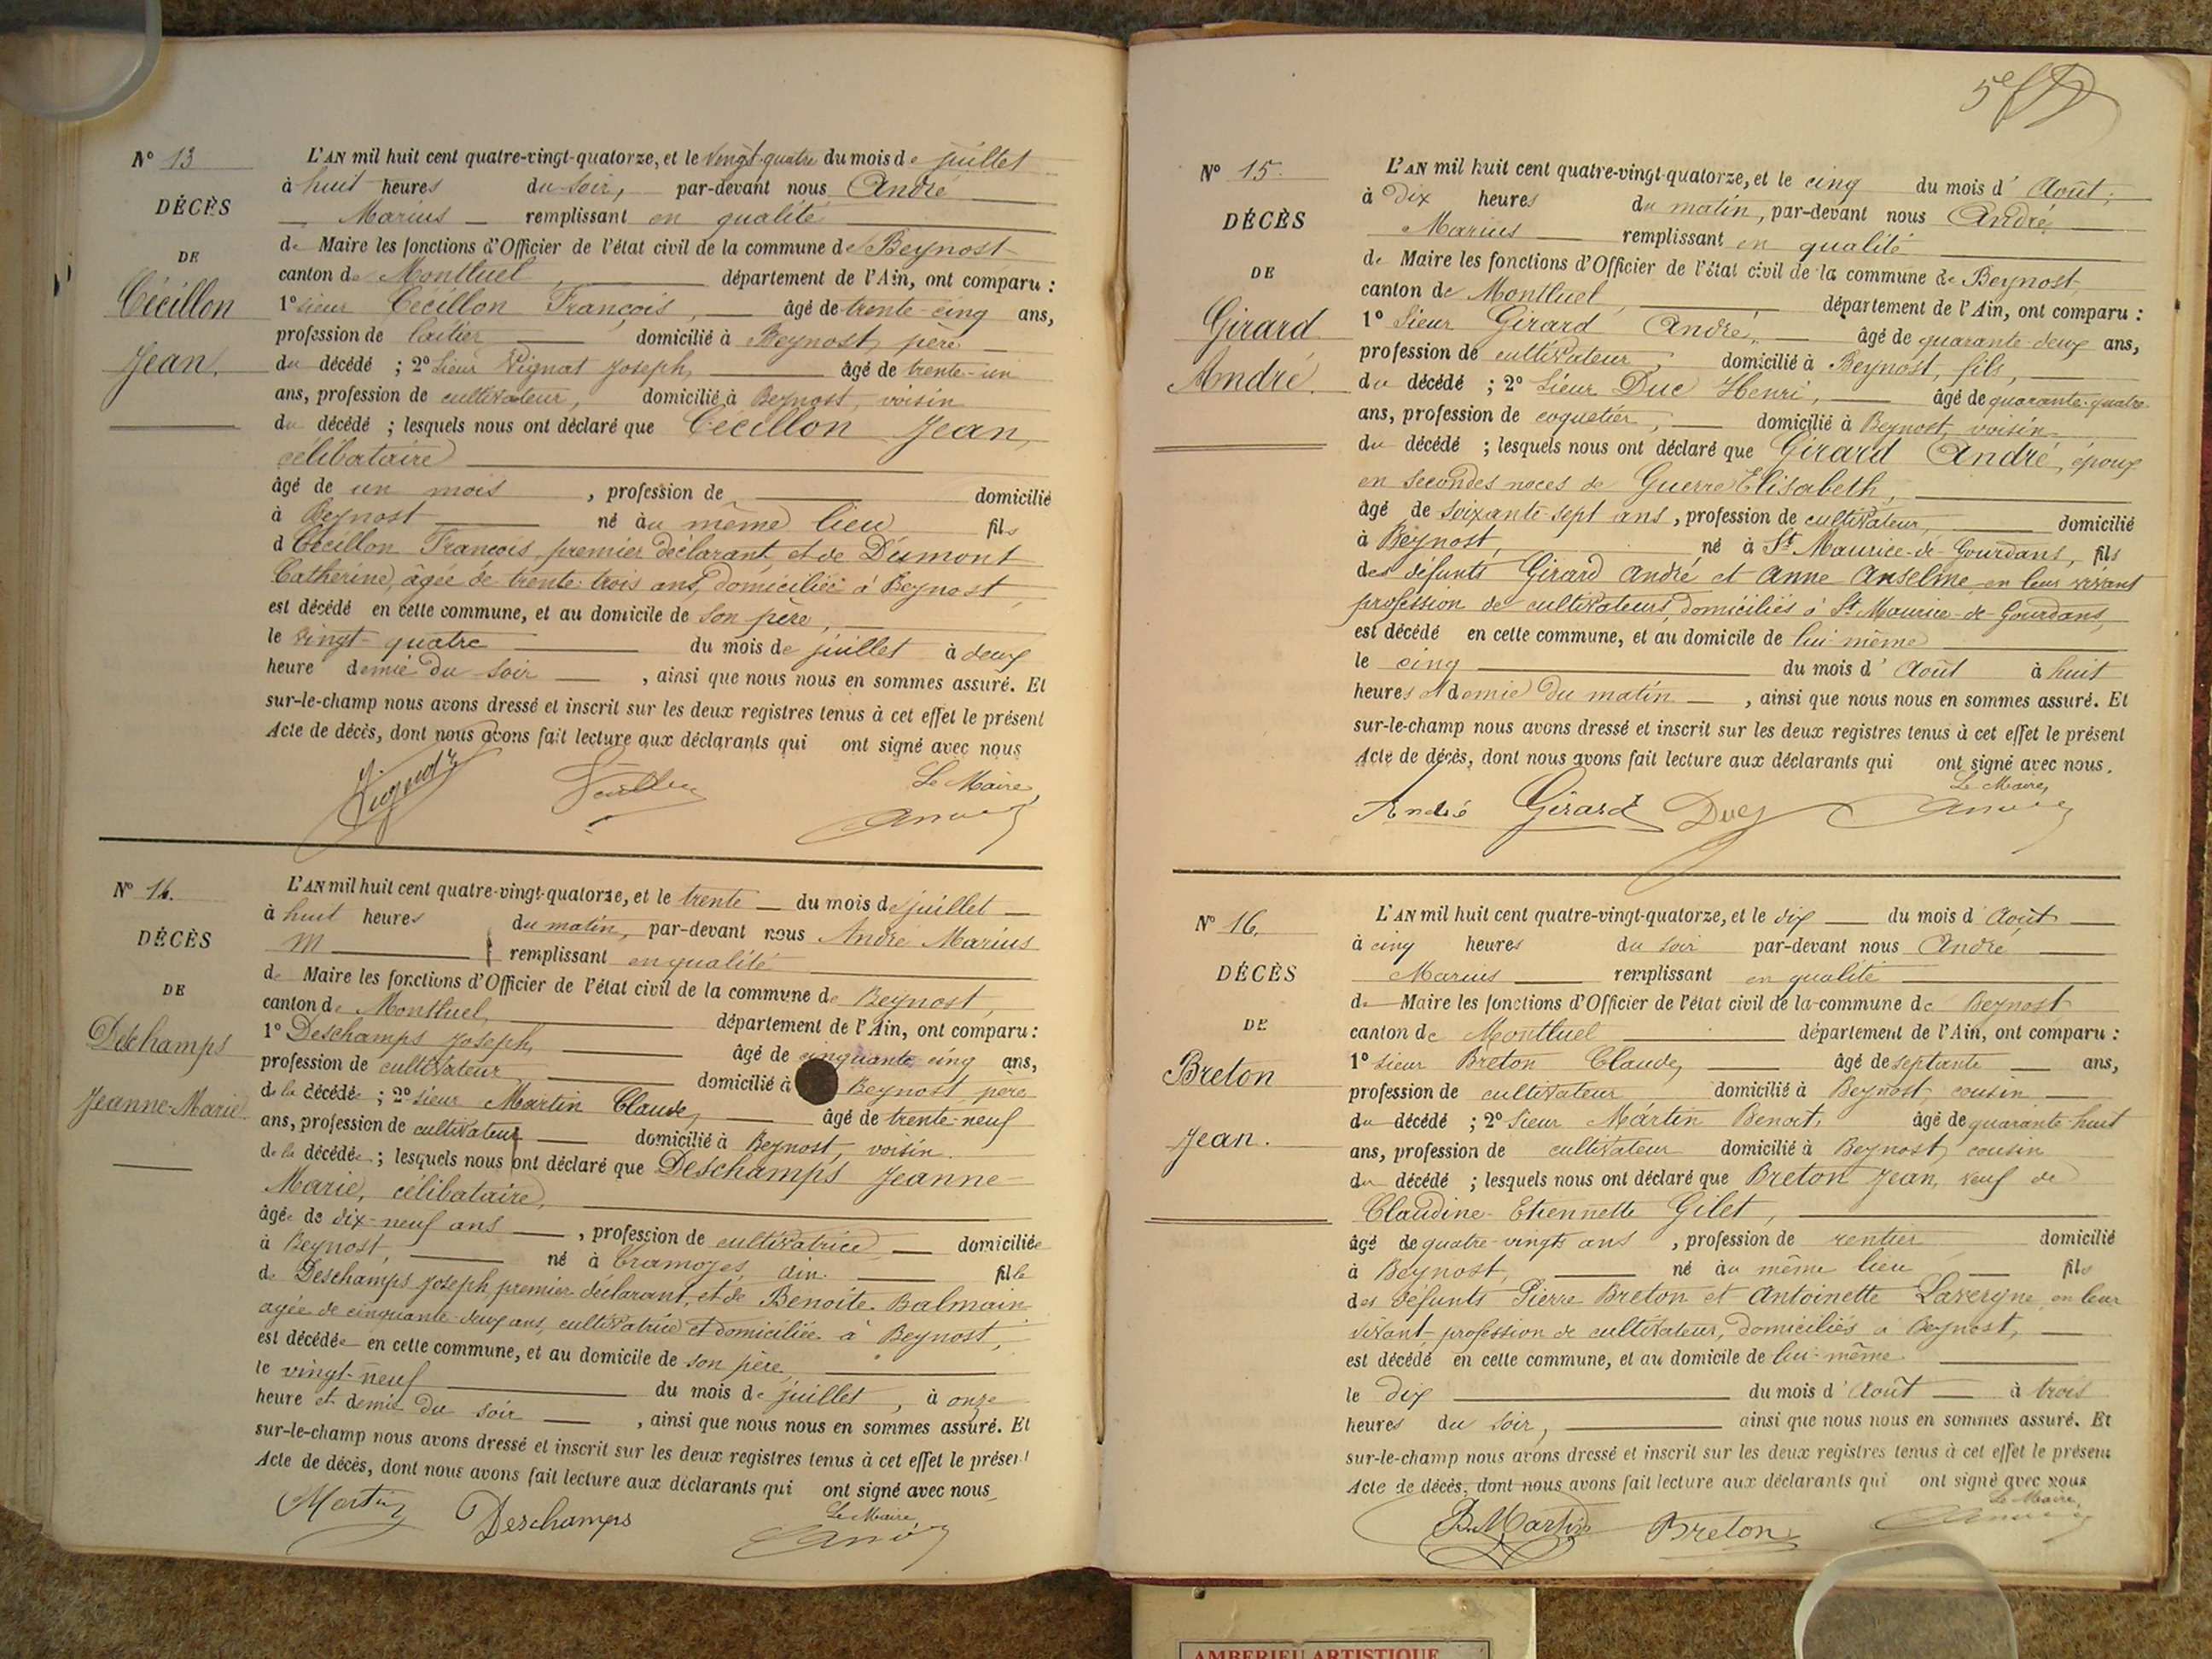 N° 13
DÉCÈS
DE
Cécillon
Jean.
L'AN mil huit cent quatre-vingt-quatorze, et le vingt-quatre du mois de juillet
à huit heures du soir, par-devant nous André
Marius remplissant en qualité
de Maire les fonctions d'Officier de l'état civil de la commune de Beynost
canton de Montluel département de l'Ain, ont comparu :
1° sieur Cécillon François, âgé de trente-cinq ans,
profession de laitier domicilié à Beynost, père
du décédé ; 2° Sieur Vignat Joseph, âgé de trente-un
ans, profession de cultivateur, domicilié à Beynost, voisin
du décédé ; lesquels nous ont déclaré que Cécillon Jean,
célibataire
âgé de un mois , profession de domicilié
à Beynost né au même lieu fils
d Cécillon François, premier déclarant, et de Dumont
Catherine, âgée de trente-trois ans, domiciliée à Beynost,
est décédé en cette commune, et au domicile de son père,
le vingt-quatre du mois de juillet à deux
heure demie du soir , ainsi que nous nous en sommes assuré. Et
sur-le-champ nous avons dressé et inscrit sur les deux registres tenus à cet effet le présent
Acte de décès, dont nous avons fait lecture aux déclarants qui ont signé avec nous
Le Maire,
N° 14.
DÉCÈS
DE
Deschamps
Jeanne-Marie
L'AN mil huit cent quatre-vingt-quatorze, et le trente du mois de juillet
à huit heures du matin, par-devant nous André Marius
M remplissant en qualité
de Maire les fonctions d'Officier de l'état civil de la commune de Beynost,
canton de Montluel, département de l'Ain, ont comparu :
1° Deschamps Joseph, âgé de cinquante cinq ans,
profession de cultivateur domicilié à Beynost, père
de la décédée ; 2° sieur Martin Claude, âgé de trente-neuf
ans, profession de cultivateur domicilié à Beynost, voisin.
de la décédée ; lesquels nous ont déclaré que Deschamps Jeanne-
Marie, célibataire,
âgée de dix-neuf ans , profession de cultivatrice domiciliée
à Beynost, né à Tramoyes, ain. fille
de Deschamps Joseph premier déclarant, et de Benoîte Balmain
agée de cinquante-deux ans, cultivatrice et domiciliée à Beynost,
est décédée en cette commune, et au domicile de son père,
le vingt-neuf du mois de juillet, à onze
heure et demie du soir , ainsi que nous nous en sommes assuré. Et
sur-le-champ nous avons dressé et inscrit sur les deux registres tenus à cet effet le présent
Acte de décès, dont nous avons fait lecture aux déclarants qui ont signé avec nous
Le Maire,
Martin Deschamps
5e
N° 15.
DÉCÈS
DE
Girard
André.
L'AN mil huit cent quatre-vingt-quatorze, et le cinq du mois d' Août,
à dix heures du matin, par-devant nous André
Marius remplissant en qualité
de Maire les fonctions d'Officier de l'état civil de la commune de Beynost
canton de Montluel, département de l'Ain, ont comparu :
1° Sieur Girard André, âgé de quarante-deux ans,
profession de cultivateur, domicilié à Beynost, fils,
du décédé ; 2° Sieur Duc Henri, âgé de quarante-quatre
ans, profession de coquetier, domicilié à Beynost, voisin
du décédé ; lesquels nous ont déclaré que Girard André, époux
en secondes noces de Guerre Elisabeth,
âgé de soixante-sept ans, profession de cultivateur, domicilié
à Beynost, né à St Maurice-de-Gourdans, fils
des défunts Girard André et Anne Anselme en leur vivant
profession de cultivateurs, domiciliés à St Maurice-de-Gourdans,
est décédé en cette commune, et au domicile de lui-même
le cinq du mois d' Août à huit
heures et demie du matin , ainsi que nous nous en sommes assuré. Et
sur-le-champ nous avons dressé et inscrit sur les deux registres tenus à cet effet le présent
Acte de décès, dont nous avons fait lecture aux déclarants qui ont signé avec nous.
Le Maire,
André Girard Duc
N° 16.
DÉCÈS
DE
Breton
Jean.
L'AN mil huit cent quatre-vingt-quatorze, et le dix du mois d' Août
à cinq heures du soir par-devant nous André
Marius remplissant en qualité
de Maire les fonctions d'Officier de l'état civil de la commune de Beynost,
canton de Montluel département de l'Ain, ont comparu :
1° sieur Breton Claude, âgé de septante ans,
profession de cultivateur domicilié à Beynost, cousin
du décédé ; 2° Sieur Martin Benoit, âgé de quarante-huit
ans, profession de cultivateur domicilié à Beynost, cousin
du décédé ; lesquels nous ont déclaré que Breton Jean, veuf de
Claudine-Etiennette Gilet,
âgé de quatre-vingts ans , profession de rentier domicilié
à Beynost, né au même lieu fils
des défunts Pierre Breton et Antoinette Lavergne, en leur
vivant profession de cultivateur, domiciliés à Beynost,
est décédé en cette commune, et au domicile de lui-même
le dix du mois d' Août à trois
heures du soir, ainsi que nous nous en sommes assuré. Et
sur-le-champ nous avons dressé et inscrit sur les deux registres tenus à cet effet le présent
Acte de décès, dont nous avons fait lecture aux déclarants qui ont signé avec nous
Le Maire,
B. Martin Breton
AMBERIEU ARTISTIQUE